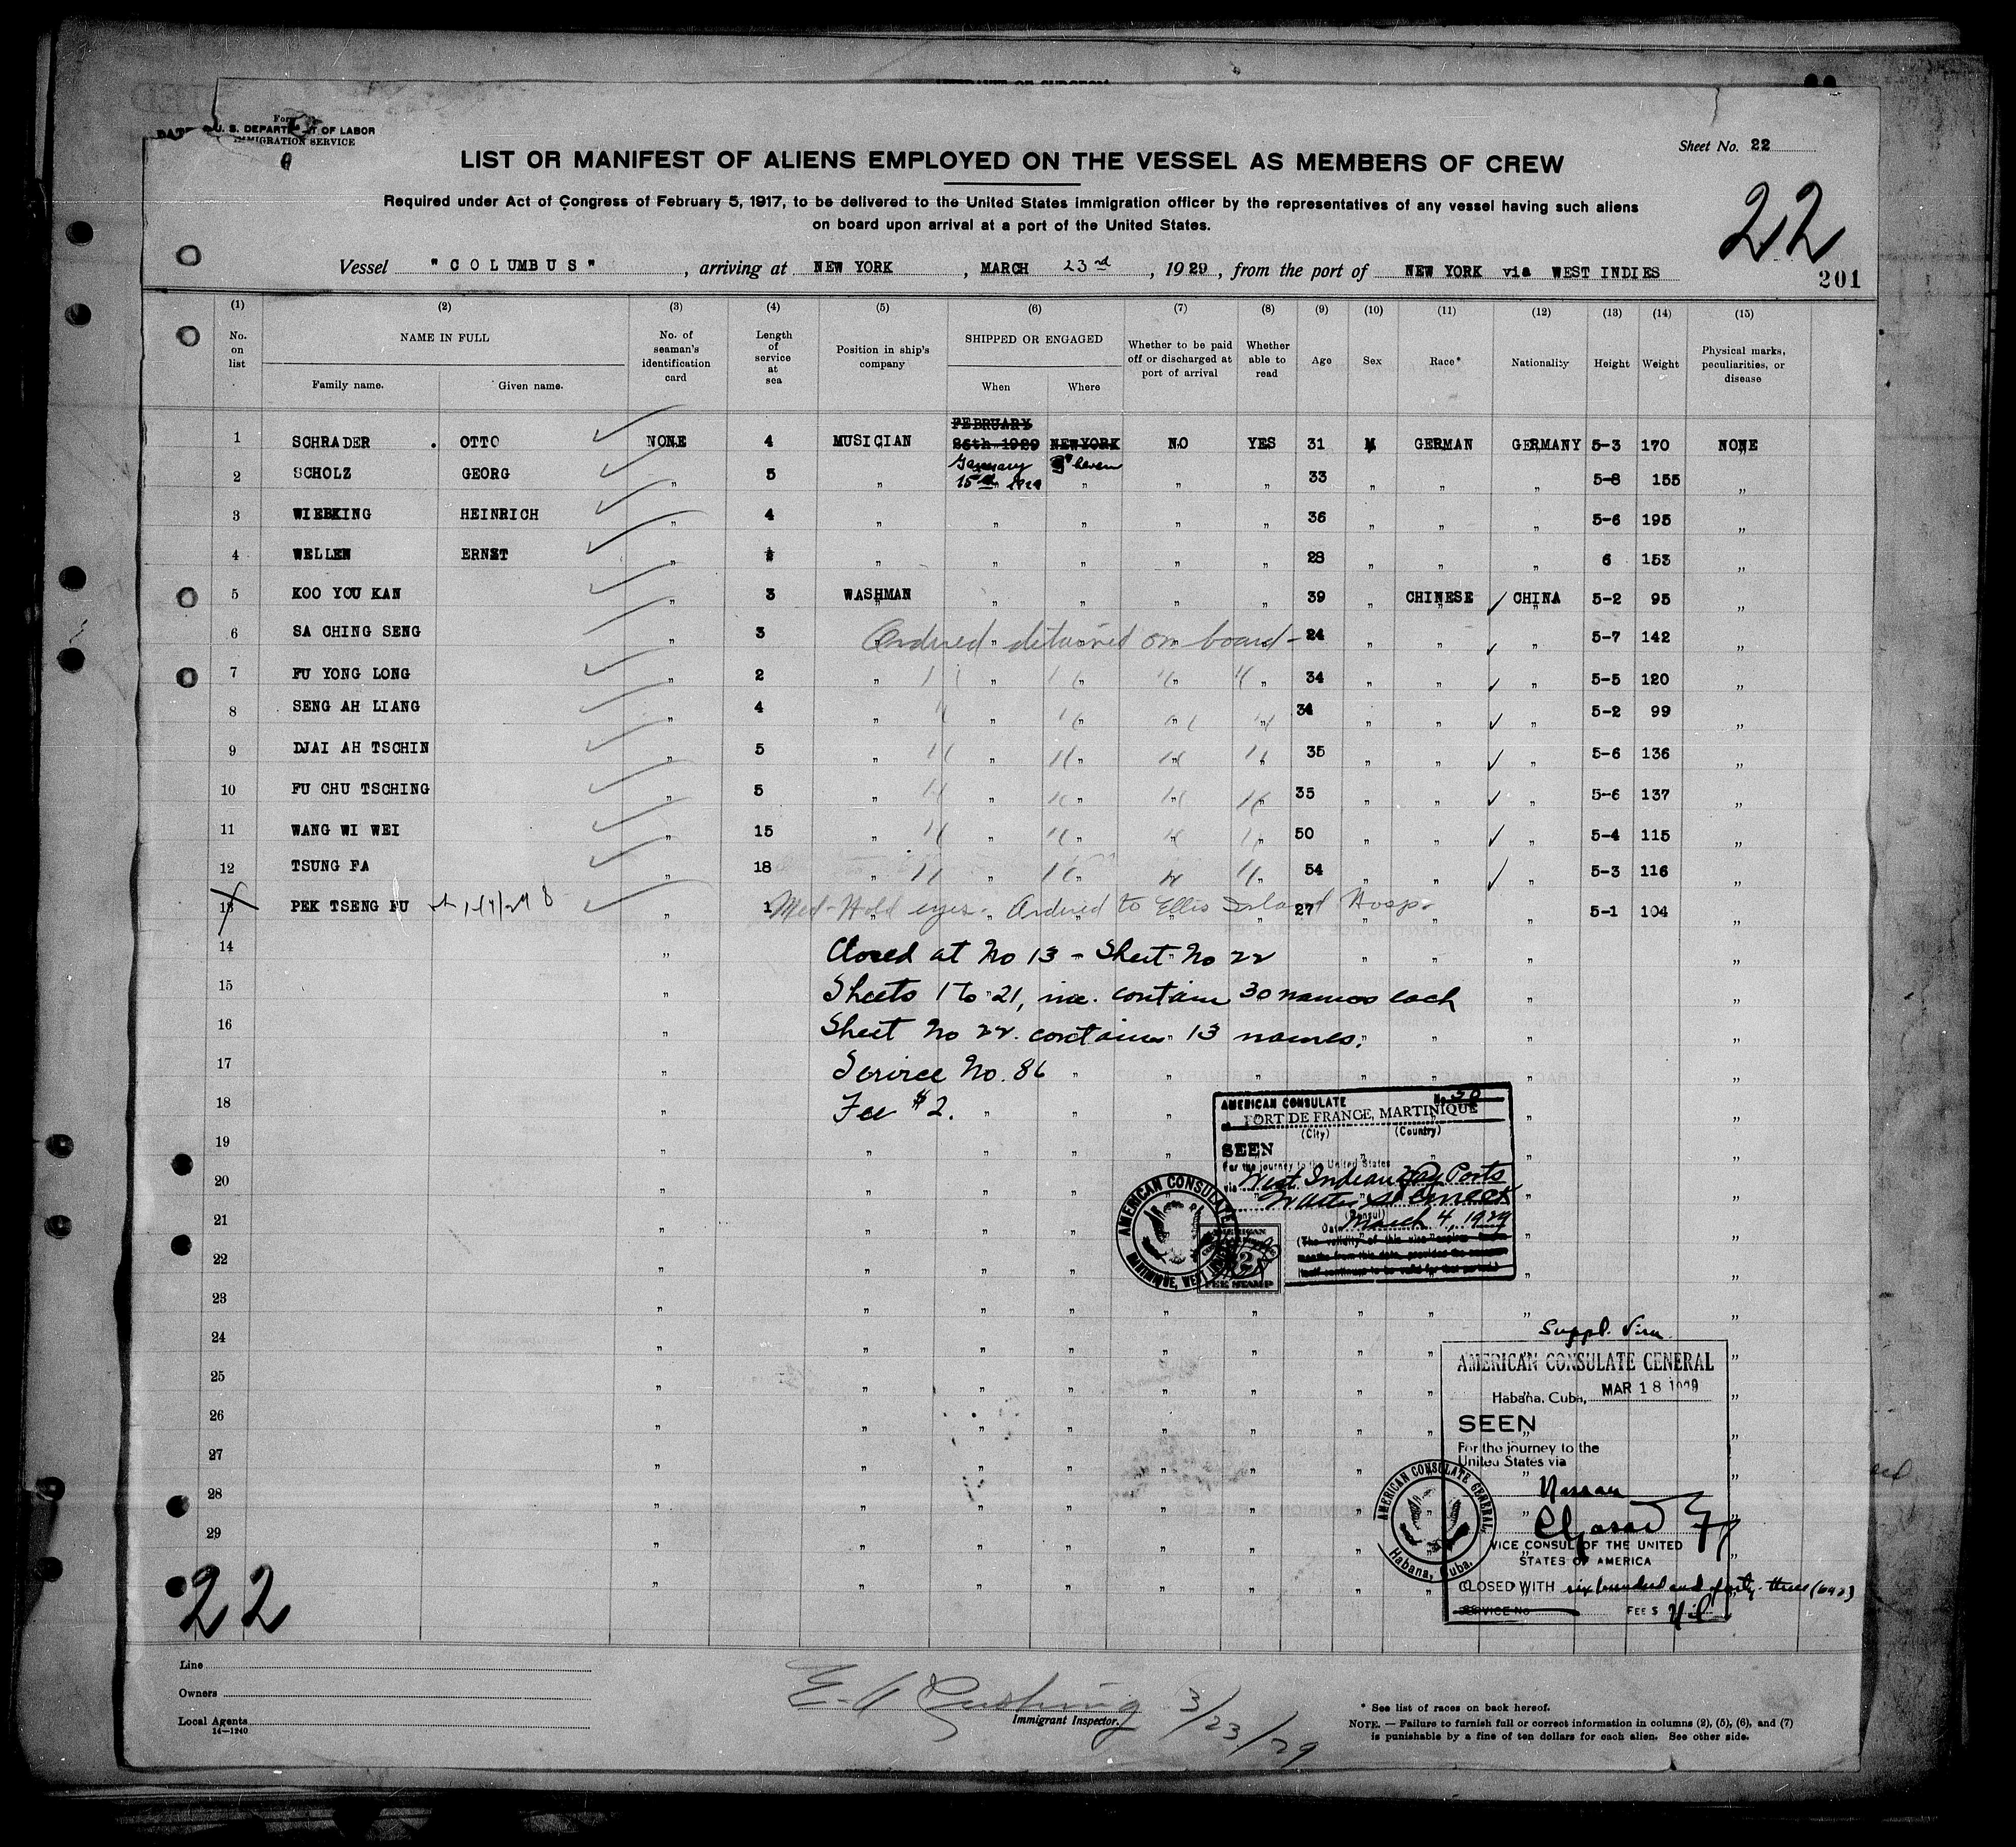 Form
U. S. DEPARTMENT OF LABOR
IMMIGRATION SERVICE
Sheet No. 22
LIST OR MANIFEST OF ALIENS EMPLOYED ON THE VESSEL AS MEMBERS OF CREW
Required under Act of Congress of February 5, 1917, to be delivered to the United States immigration officer by the representatives of any vessel having such aliens
on board upon arrival at a port of the United States.
22
Vessel "COLUMBUS", arriving at NEW YORK, MARCH 23rd, 1929, from the port of NEW YORK via WEST INDIES
201
(1) (2) (3) (4) (5) (6) (7) (8) (9) (10) (11) (12) (13) (14) (15)
No. on list
NAME IN FULL
Family name. Given name.
No. of seaman's identification card
Length of service at sea
Position in ship's company
SHIPPED OR ENGAGED
When Where
Whether to be paid off or discharged at port of arrival
Whether able to read
Age
Sex
Race*
Nationality
Height
Weight
Physical marks, peculiarities, or disease
FEBRUARY
1 SCHRADER . OTTO NONE 4 MUSICIAN 26th 1929 NEWYORK NO YES 31 M GERMAN GERMANY 5-3 170 NONE
January
2 SCHOLZ GEORG " 5 " 15th 1929 " " " 33 " " " 5-8 155 "
3 WIEBKING HEINRICH " 4 " " " " " 36 " " " 5-6 195 "
4 WELLEN ERNST " " " " " " 28 " " " 6 153 "
5 KOO YOU KAN " 3 WASHMAN " " " " 39 " CHINESE CHINA 5-2 95 "
6 SA CHING SENG " 3 Ordered detained on board - 24 " " " 5-7 142 "
7 FU YONG LONG " 2 " " " " " 34 " " " 5-5 120 "
8 SENG AH LIANG " 4 " " " " " 34 " " " 5-2 99 "
9 DJAI AH TSCHIN " 5 " " " " " 35 " " " 5-6 136 "
10 FU CHU TSCHING " 5 " " " " " 35 " " " 5-6 137 "
11 WANG WI WEI " 15 " " " " " 50 " " " 5-4 115 "
12 TSUNG FA " 18 " " " " " 54 " " " 5-3 116 "
13 PEK TSENG FU " 1 Med-Hold eyes. Ordered to Ellis Island Hosp. 27 " " " 5-1 104 "
14 Closed at No 13 - Sheet No 22
15 Sheets 1 to 21, inc. contain 30 names each
16 Sheet No 22 contains 13 names.
17 Service No. 86
18 Fee $2.
19
20
21
22
23
24
25
26
27
28
29
AMERICAN CONSULATE No. 30
FORT DE FRANCE, MARTINIQUE
(City) (Country)
SEEN
For the journey to the United States
via West Indian Ports
(Consul)
Date March 4, 1929
(The validity of this visa expires
months from this date, provided the
itself continues to be valid for that period)
AMERICAN CONSULATE
MARTINIQUE, WEST INDIES
2
FEE STAMP
Suppl. Visa
AMERICAN CONSULATE GENERAL
Habana, Cuba, MAR 18 1929
SEEN
For the journey to the
United States via
Nassau
VICE CONSUL OF THE UNITED
STATES OF AMERICA
CLOSED WITH six hundred and forty-three (643)
SERVICE No FEE $ Nil
AMERICAN CONSULATE GENERAL,
Habana, Cuba.
22
Line
Owners
Local Agents
14—1240
E. A Cushing 3/23/29
Immigrant Inspector.
* See list of races on back hereof.
NOTE. — Failure to furnish full or correct information in columns (2), (5), (6), and (7)
is punishable by a fine of ten dollars for each alien. See other side.